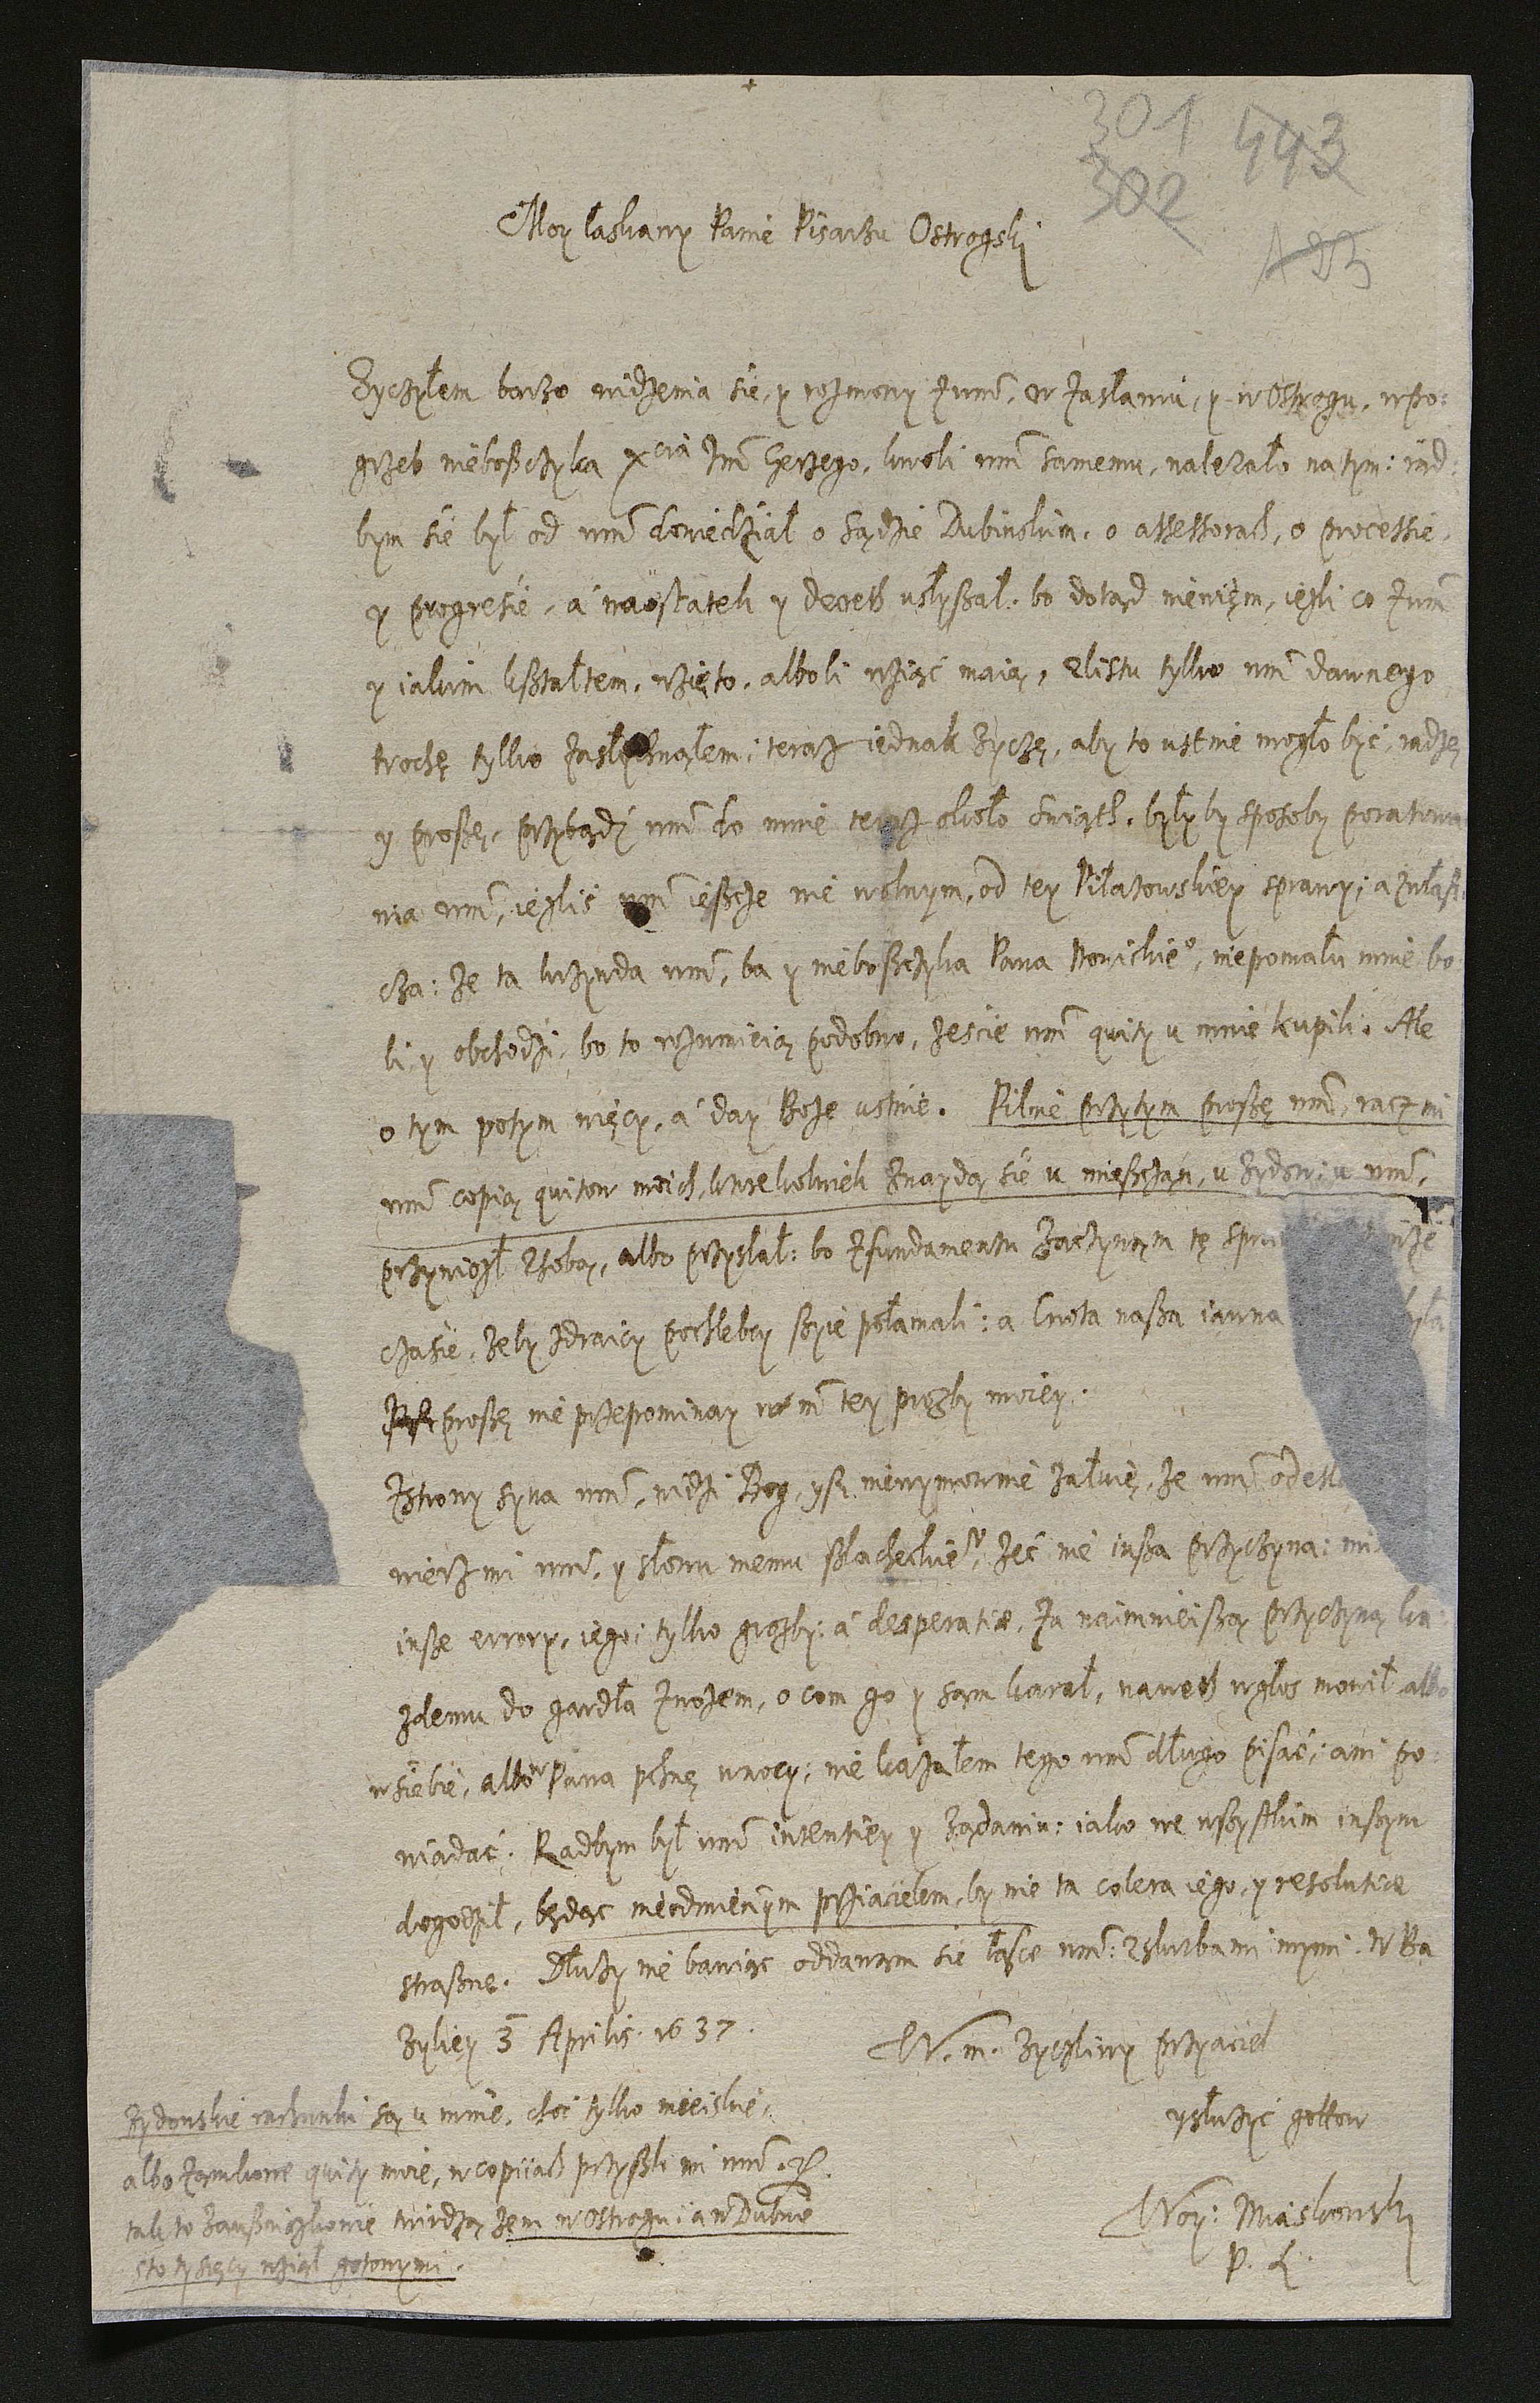 301 443
302
Moy łaskawy Panie Pisarzu Ostrogski
Zyczyłem barzo widzenia sie, y rozmowy zwm̃. w Zasławiu, y w Ostrogu, w po:
grzeb nieboszczyka Xcia Jm̃ Jerzego, kwoli wm̃ samemu, nalezało na tym: iad:
bym sie był od wm̃ dowiedział o sądzie Dubinskim, o assessorach, o processie,
y progresie, á naostatek y decreth usłyszał. bo dotąd niewiem, iezli co zwm̃
y iakim kształtem, wzięto, alboli wziąć maią, z listu tylko wm̃ dawnego
trochę tylko zasłysznąłem; teraz iednak zyczę, aby to ustnie mogło być, radzę
y proszę, przybądź wm̃ do mnie teraz około świąth, byłyby sposoby poratowa
nia wm̃, iezliś wm̃ ieszcze nie wolnym, od tey Piłatowskiey sprawy; a zwłasz
cza: że ta krzywda wm̃, ba y nieboszczyka Pana Nowickieo, niepomału mnie bo
li y obchodzi, bo to rozumieią podobno, zescie wm̃ quity u mnie kupili. Ale
o tym potym więcy, á day Boże ustnie. Pilnie przytym proszę wm̃, racz mi
wm̃ copią quitow moich, ktorekolwiek znaydą sie u mieszczan, u Zydow; u wm̃,
przyniozł z sobą, albo przysłał: bo z fundamentu zaczynam tę
czasie, zeby zdraicy pochlebcy szyie połamali: a Cnota nasza iawna
proszę nie przepominay wm̃ tey prozby moiey.
Zstrony syna wm̃, widzi Bog, ysz niewymownie załuię, ze wm̃
wierz mi wm̃, y słowu memu szlacheckiemu, żeć nie insza przyczyna:
insze errory, iego; tylko grozby: á desperatiae, Za naimnieiszą przyczyną ka
zdemu do gardła znozem, o com go y sam karał, naweth wgłos mowił albo
w siebie, albo w Pana pchnę w nocy; nie kazałem tego wm̃ długo pisać; ani po:
wiadać. Radbym był wm̃ intentiey y ządaniu: iako we wszystkim inszym
dogodził, będąc nieodmiennym przyiacielem, by nie ta colera iego, y resolutiae
straszne. Dłuzy nie bawiąc oddawam sie łasce wm̃: z sluzbami mymi. W Ba
zyliey 3 Aprilis. 1637.
W. m. Zyczliwy przyaciel
y słuzyć gottow
Woy: Miaskowski
P. L.
Zydowskie rachunki są u mnie, choć tylko mieiskie,
albo zamkowe quity moie, w copiiach przyszli mi wm̃.
tak to twirdzą zem w Ostrogu: a w Dubnie
sto tysięcy wziął gotowymi.